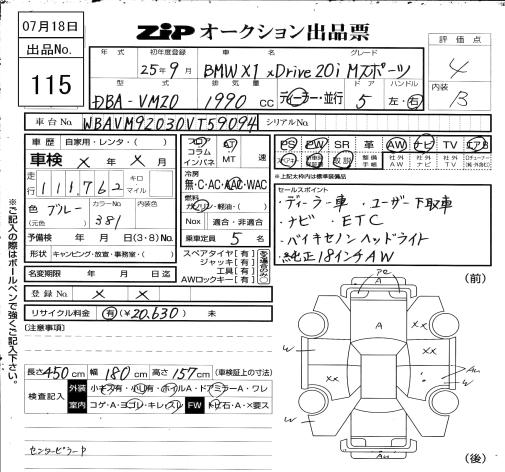 07月18日
ZiP オークション出品票
出品No.
115
年式 初年度登録 車名 グレード
25年9月 BMW X1 xDrive 20i Mスポーツ
型式 排気量 ドア ハンドル
DBA-VM20 1990 cc ディーラー・並行 5 左・右
評価点
4
内装
B
車台No. WBAVM92030VT59094 シリアルNo.
車歴 自家用・レンタ・( )
車検 × 年 × 月
走行 111,762 キロ マイル
色 ブルー カラーNo. 381 内装色
(元色)
予備検 年 月 日(3・8)No.
形状 キャンピング・放宣・事務室・( )
名変期限 年 月 日迄
登録No. × ×
リサイクル料金 有(¥20,630) 未
フロア コラム インパネ AT MT 速
冷房
無・C・AC・AAC・WAC
燃料
ガソリン・軽油・( )
Nox 適合・非適合
乗車定員 5 名
スペアタイヤ[有]
ジャッキ[有]
工具[有]
AWロックキー[有]
PS PW SR 革 AW ナビ TV エアB
取説 整備手帳 社外AW 社外ナビ 社外TV
※上記太枠内は標準装備品
セールスポイント
・ディーラー車 ・ユーザー下取車
・ナビ ・ETC
・バイキセノンヘッドライト
・純正18インチAW
(注意事項)
長さ450cm 幅180cm 高さ157cm (車検証上の寸法)
検査記入 外装 小キズ有・小凹有・ホイルA・ドアミラーA・ワレ
室内 コゲ・A・ヨゴレ・キレ・スレ FW トビ石・A・×要ス
センターピラーP
※ご記入の際はボールペンで強くご記入下さい。
(前)
A
A
××
××
××
W
W
W
Au
Au
(後)